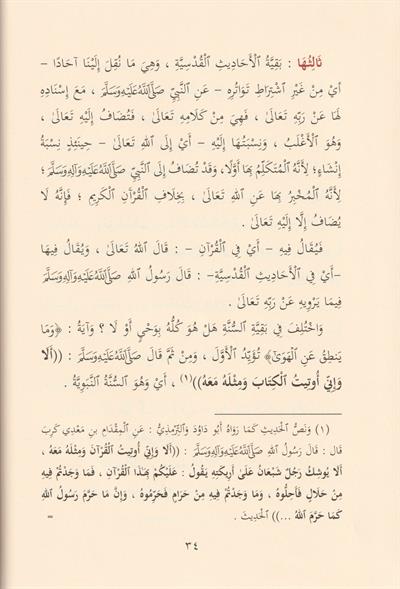 ثَالِثُهَا : بَقِيَّةُ ٱلْأَحَادِيثِ ٱلْقُدْسِيَّةِ ، وَهِيَ مَا نُقِلَ إِلَيْنَا آحَادًا –
أَيْ مِنْ غَيْرِ ٱشْتِرَاطِ تَوَاتُرِهِ – عَنِ ٱلنَّبِيِّ صَلَّىٱللَّهُعَلَيْهِوَآلِهِوَسَلَّمَ ، مَعَ إِسْنَادِهِ
لَهَا عَنْ رَبِّهِ تَعَالَى ، فَهِيَ مِنْ كَلَامِهِ تَعَالَى ، فَتُضَافُ إِلَيْهِ تَعَالَى ،
وَهُوَ ٱلْأَغْلَبُ ، وَنِسْبَتُهَا إِلَيْهِ – أَيْ إِلَى ٱللهِ تَعَالَى – حِينَئِذٍ نِسْبَةُ
إِنْشَاءٍ؛ لِأَنَّهُ ٱلْمُتَكَلِّمُ بِهَا أَوَّلًا، وَقَدْ تُضَافُ إِلَى ٱلنَّبِيِّ صَلَّىٱللَّهُعَلَيْهِوَآلِهِوَسَلَّمَ ؛
لِأَنَّهُ ٱلْمُخْبِرُ بِهَا عَنِ ٱللهِ تَعَالَى ، بِخِلَافِ ٱلْقُرْآنِ ٱلْكَرِيمِ ؛ فَإِنَّهُ لَا
يُضَافُ إِلَّا إِلَيْهِ تَعَالَى .
فَيُقَالُ فِيهِ – أَيْ فِي ٱلْقُرْآنِ – : قَالَ ٱللهُ تَعَالَى ، وَيُقَالُ فِيهَا
–أَيْ فِي ٱلْأَحَادِيثِ ٱلْقُدْسِيَّةِ– : قَالَ رَسُولُ ٱللهِ صَلَّىٱللَّهُعَلَيْهِوَآلِهِوَسَلَّمَ
فِيمَا يَرْوِيهِ عَنْ رَبِّهِ تَعَالَى .
وَٱخْتُلِفَ فِي بَقِيَّةِ ٱلسُّنَّةِ هَلْ هُوَ كُلُّهُ بِوَحْيٍ أَوْ لَا ؟ وَآيَةُ : ﴿وَمَا
يَنطِقُ عَنِ ٱلْهَوَىٰ﴾ تُؤَيِّدُ ٱلْأَوَّلَ ، وَمِنْ ثَمَّ قَالَ صَلَّىٱللَّهُعَلَيْهِوَآلِهِوَسَلَّمَ : ((أَلَا
وَإِنِّي أُوتِيتُ ٱلْكِتَابَ وَمِثْلَهُ مَعَهُ))(١) ، أَيْ وَهُوَ ٱلسُّنَّةُ ٱلنَّبَوِيَّةُ .
(١) وَنَصُّ ٱلْحَدِيثِ كَمَا رَوَاهُ أَبُو دَاوُدَ وَٱلتِّرْمِذِيُّ : عَنِ ٱلْمِقْدَامِ بْنِ مَعْدِي كَرِبَ
قَالَ : قَالَ رَسُولُ ٱللهِ صَلَّىٱللَّهُعَلَيْهِوَآلِهِوَسَلَّمَ : ((أَلَا وَإِنِّي أُوتِيتُ ٱلْقُرْآنَ وَمِثْلَهُ مَعَهُ ،
أَلَا يُوشِكُ رَجُلٌ شَبْعَانُ عَلَى أَرِيكَتِهِ يَقُولُ : عَلَيْكُمْ بِهَٰذَا ٱلْقُرْآنِ ، فَمَا وَجَدْتُمْ فِيهِ
مِنْ حَلَالٍ فَأَحِلُّوهُ ، وَمَا وَجَدْتُمْ فِيهِ مِنْ حَرَامٍ فَحَرِّمُوهُ ، وَإِنَّ مَا حَرَّمَ رَسُولُ ٱللهِ
كَمَا حَرَّمَ ٱللهُ ...)) ٱلْحَدِيثَ . =
٣٤